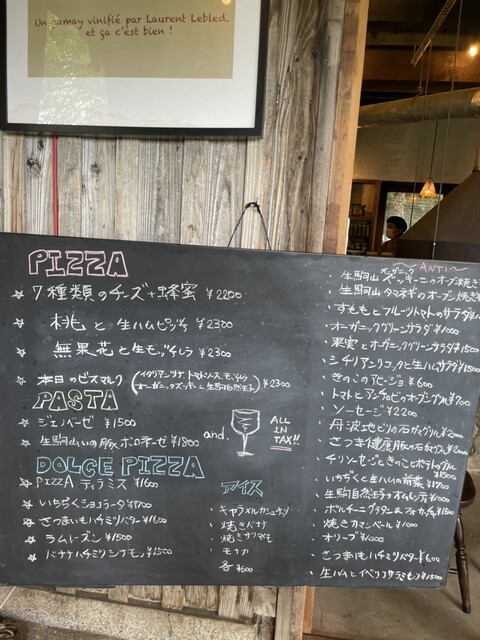 Un gamay vinifié par Laurent Lebled,
et ça c'est bien !
PIZZA
☆ 7種類のチーズ+蜂蜜 ¥2200
☆ 桃と生ハムピッツァ ¥2300
☆ 無果花と生モッツァレラ ¥2300
☆ 本日のビスマルク (イタリアンツナ トマトソース モッツァレラ
オーガニックズッキーニ 生駒自然玉子) ¥2300
PASTA
☆ ジェノベーゼ ¥1500
☆ 生駒山いの豚 ボロネーゼ ¥1800
and.
ALL
IN
TAX!!
DOLCE PIZZA
☆ PIZZA ティラミス ¥1600
☆ いちぢくショコラータ ¥1700
☆ さつまいもハチミツバター ¥1600
☆ ラムレーズン ¥1500
☆ バナナハチミツシナモン ¥1500
アイス
・キャラメルカシューナッツ
・焼きバナナ
・焼きサツマイモ
・モナカ
・各 ¥600
〜ANTI〜
オーガニック
・生駒山ズッキーニのオーブン焼き
・生駒山タマネギのオーブン焼き
・すももとフルーツトマトのサラダ
・オーガニックグリーンサラダ ¥1000
・果実とオーガニックグリーンサラダ ¥1500
・シチリアンリコッタと生ハムサラダ ¥1500
・きのこのアヒージョ ¥600
・トマトとアンチョビのオーブングリル ¥700
・ソーセージ ¥2200
・丹波地どりの石ガマグリル
・さつき健康豚の石ガマグリル
・チリソーセージときのことポテトのグリル
¥1500
・いちぢくと生ハムの前菜 ¥1700
・生駒自然玉子のオムレツ
・ポルチーニグラタン&フォカッチャ ¥1500
・焼きカマンベール ¥1000
・オリーブ ¥1000
・さつまいもハチミツバター ¥600
・生ハムとイベリコサラミモリ ¥1500